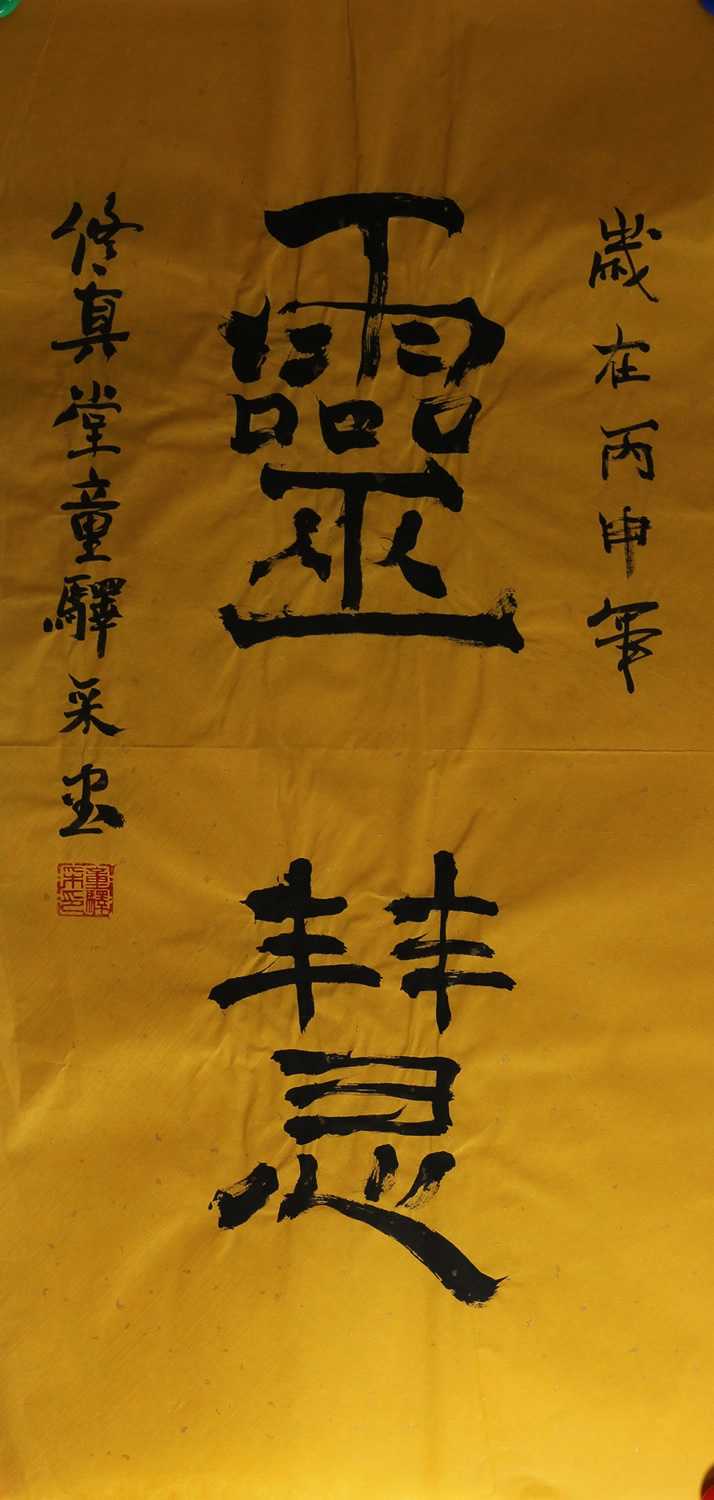 歲在丙申年
靈慧
修真堂童驛采書
童驛
采印